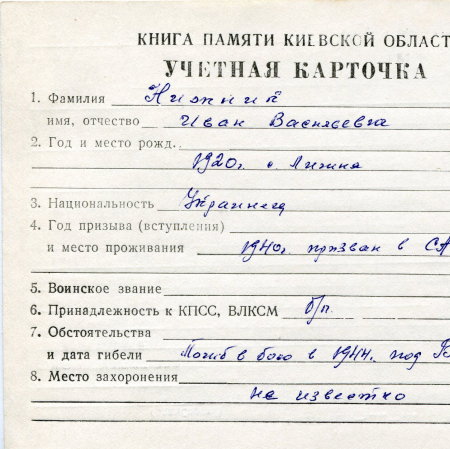 КНИГА ПАМЯТИ КИЕВСКОЙ ОБЛАСТ
УЧЕТНАЯ КАРТОЧКА
1. Фамилия Нижний
имя, отчество Иван Васильевич
2. Год и место рожд.
1920г. с.
3. Национальность Украинец
4. Год призыва (вступления)
и место проживания 1940г. призван в СА
5. Воинское звание
6. Принадлежность к КПСС, ВЛКСМ б/п.
7. Обстоятельства
и дата гибели Погиб в бою в 1944г. под
8. Место захоронения
не известно